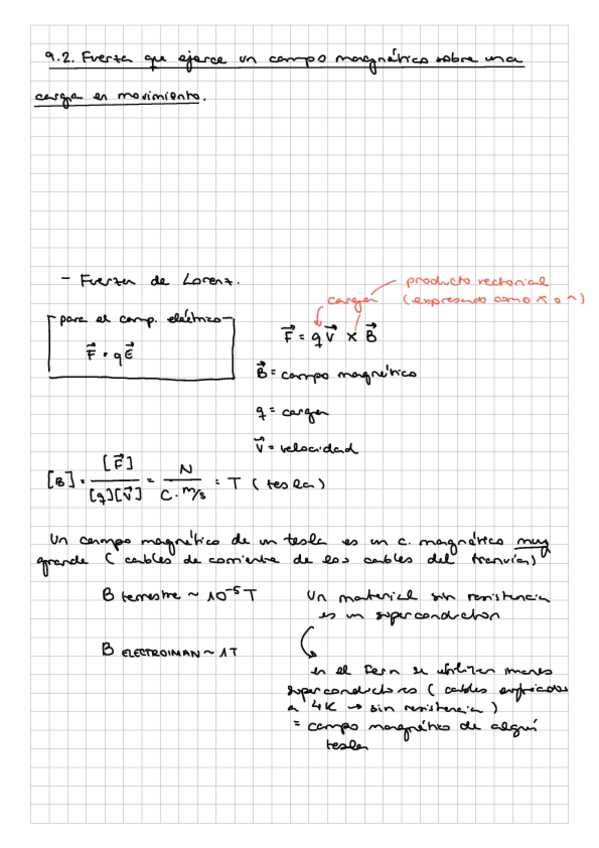 9.2. Fuerza que ejerce un campo magnético sobre una
carga en movimiento.
- Fuerza de Lorenz.
producto vectorial
carga (expresando como × o ^)
para el camp. eléctrico
F⃗ = qE⃗
F⃗ = qV⃗ × B⃗
B⃗ = campo magnético
q = carga
V⃗ = velocidad
[B] = [F⃗]/[q][V⃗] = N/C·m/s = T (tesla)
Un campo magnético de un tesla es un c. magnético muy
grande (cables de corriente de los cables del tranvía)
B terrestre ~ 10⁻⁵ T
Un material sin resistencia
es un superconductor
B ELECTROIMAN ~ 1T
en el Cern se utilizan imanes
superconductores (cables enfriados
a 4K → sin resistencia)
= campo magnético de algún
tesla